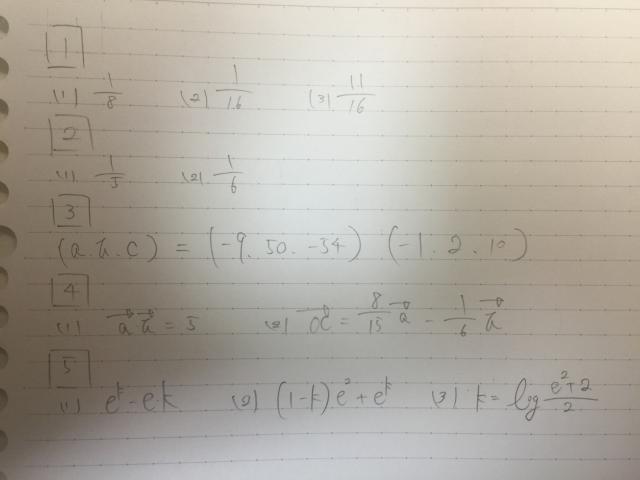 1
(1) 1/8 (2) 1/16 (3) 11/16
2
(1) 1/5 (2) 1/6
3
(a.b.c) = (-9.50.-54) (-1.2.10)
4
(1) a⃗ b⃗ = 5 (2) OC⃗ = 8/15 a⃗ - 1/6 b⃗
5
(1) e^k - ek (2) (1-k)e^2 + e^k (3) k = log (e^2+2)/2